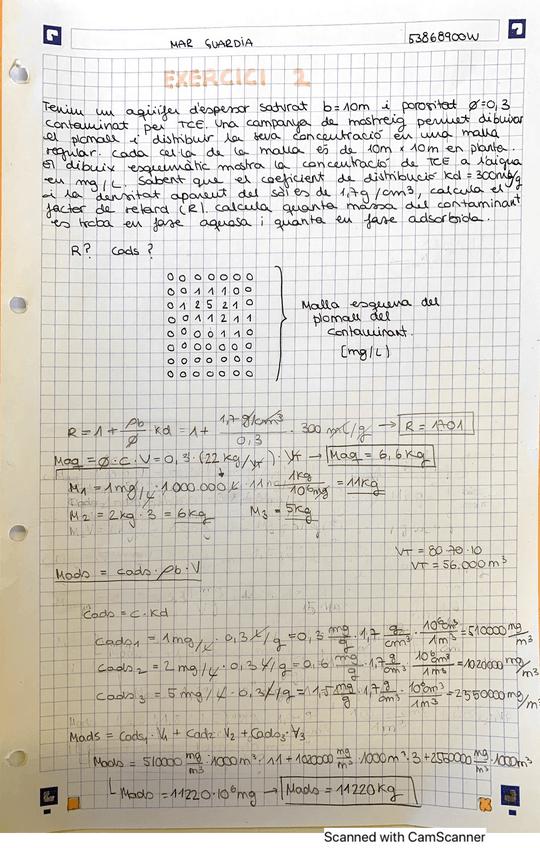 MAR GUARDIA 53868900W
EXERCICI 2
Tenim un aqüífer d'espesor saturat b=10m i porositat ø=0,3
contaminat per TCE. Una campanya de mostreig permet dibuixar
el plomall i distribuir la seva concentració en una malla
regular. Cada cel·la de la malla és de 10m x 10m en planta.
El dibuix esquemàtic mostra la concentració de TCE a l'aigua
en mg/L. Sabent que el coeficient de distribució Kd = 300ml/g
i la densitat aparent del sòl és de 1,7g/cm³, calcula el
factor de retard (R). Calcula quanta massa del contaminant
es troba en fase aquosa i quanta en fase adsorbida.
R? Cads?
0 0 0 0 0 0 0
0 0 1 1 1 0 0
0 1 2 5 2 1 0
0 0 1 1 2 1 1
0 0 0 0 1 1 0
0 0 0 0 0 0 0
0 0 0 0 0 0 0
0 0 0 0 0 0 0
Malla esquema del
plomall del
contaminant.
[mg/L]
R = 1 + ρb/ø kd = 1 + 1,7 g/cm³/0,3 · 300 ml/g → R = 1701
Maq = ø·C·V = 0,3·(22 kg/VT)·VT → Maq = 6,6 Kg
M1 = 1mg/L · 1.000.000 L · 11 · 1kg/10⁶mg = 11Kg
M2 = 2kg · 3 = 6kg M3 = 5kg
VT = 80·70·10
VT = 56.000 m³
Mads = Cads · ρb · V
Cads = C · Kd
Cads1 = 1mg/L · 0,3 L/g = 0,3 mg/g · 1,7 g/cm³ · 10⁶cm³/1m³ = 510000 mg/m³
Cads2 = 2mg/L · 0,3 L/g = 0,6 mg/g · 1,7 g/cm³ · 10⁶cm³/1m³ = 1020000 mg/m³
Cads3 = 5mg/L · 0,3 L/g = 1,5 mg/g · 1,7 g/cm³ · 10⁶cm³/1m³ = 2550000 mg/m³
Mads = Cads1 · V1 + Cad2 · V2 + Cads3 · V3
Mads = 510000 mg/m³ · 1000m³ · 11 + 1020000 mg/m³ · 1000m³ · 3 + 2550000 mg/m³ · 1000m³
Mads = 11220·10⁶ mg → Mads = 11220 Kg
Scanned with CamScanner